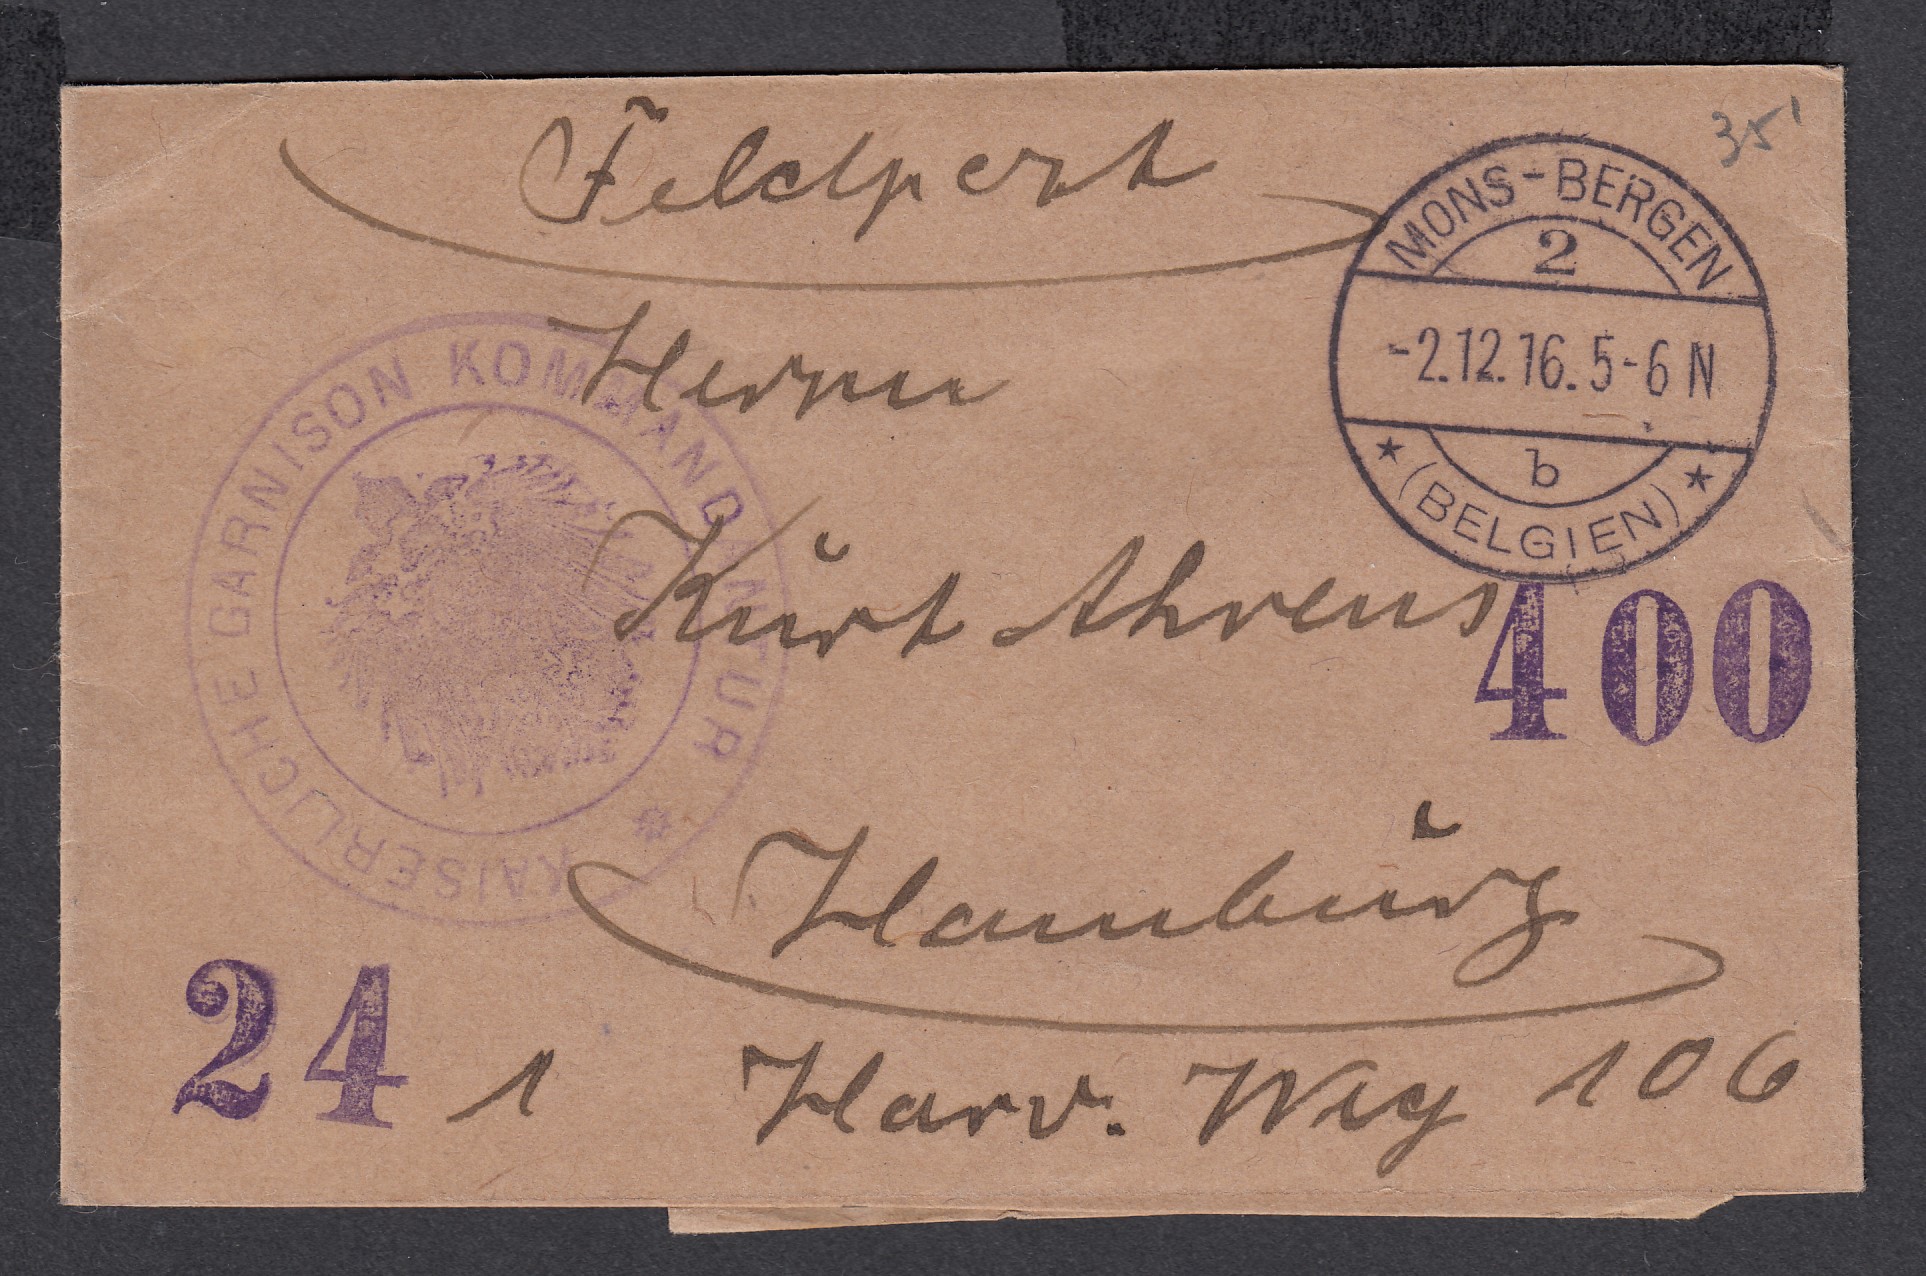 Feldpost
35
MONS-BERGEN
2
-2.12.16.5-6 N
b
★ (BELGIEN) ★
KAISERLICHE GARNISON KOMMANDANTUR *
Herrn
Kurt Ahrens
400
Hamburg
24 1 Harv. Weg 106